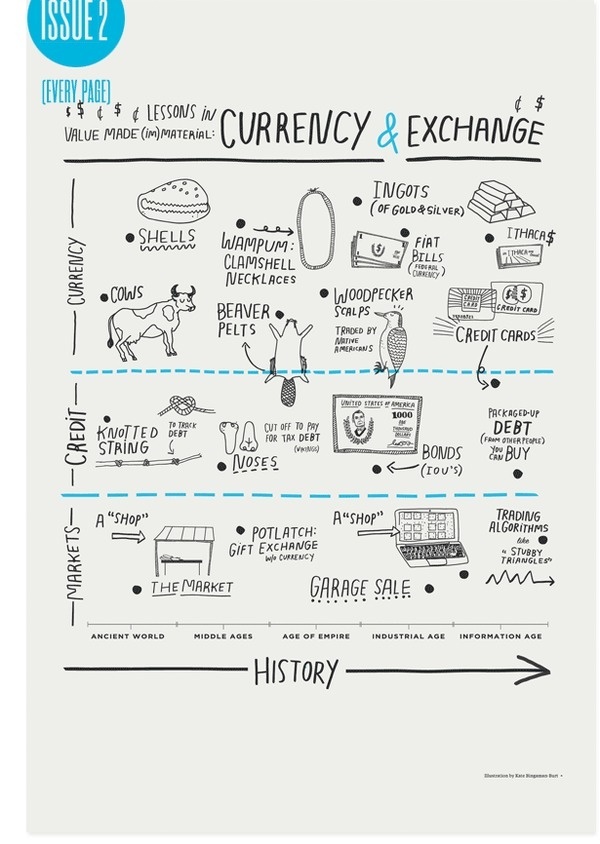 ISSUE 2
(EVERY PAGE)
$ $ ¢ $ ¢ LESSONS in
VALUE MADE (im)MATERIAL:
CURRENCY & EXCHANGE
¢ $
CURRENCY
SHELLS
WAMPUM:
CLAMSHELL
NECKLACES
INGOTS
(OF GOLD & SILVER)
FIAT
BILLS
(FEDERAL
CURRENCY)
ITHACA$
COWS
BEAVER
PELTS
WOODPECKER
SCALPS
TRADED BY
NATIVE
AMERICANS
CREDIT
CARD
CREDIT CARD
CREDIT CARDS
CREDIT
KNOTTED
STRING
TO TRACK
DEBT
CUT OFF TO PAY
FOR TAX DEBT
(VIKINGS)
NOSES
UNITED STATES OF AMERICA
1000
ONE
THOUSAND
DOLLARS
BONDS
(I.O.U'S)
PACKAGED-UP
DEBT
(FROM OTHER PEOPLE)
YOU
CAN BUY
MARKETS
A "SHOP"
THE MARKET
POTLATCH:
GIFT EXCHANGE
W/O CURRENCY
A "SHOP"
GARAGE SALE
TRADING
ALGORITHMS
like
"STUBBY
TRIANGLES"
ANCIENT WORLD
MIDDLE AGES
AGE OF EMPIRE
INDUSTRIAL AGE
INFORMATION AGE
HISTORY
Illustration by Kate Bingaman-Burt •